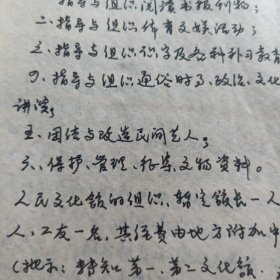 指导与组织阅读书报刊物；
二、指导与组织体育文娱活动；
三、指导与组织识字及各科补习教育
四、指导与组织通俗时事、政治、文化
讲演；
五、团结与改造民间艺人；
六、保护、管理、征集文物资料。
人民文化馆的组织，暂定馆长一人
人，工友一名，其经费由地方附加中
（批示：转知第一、第二文化馆